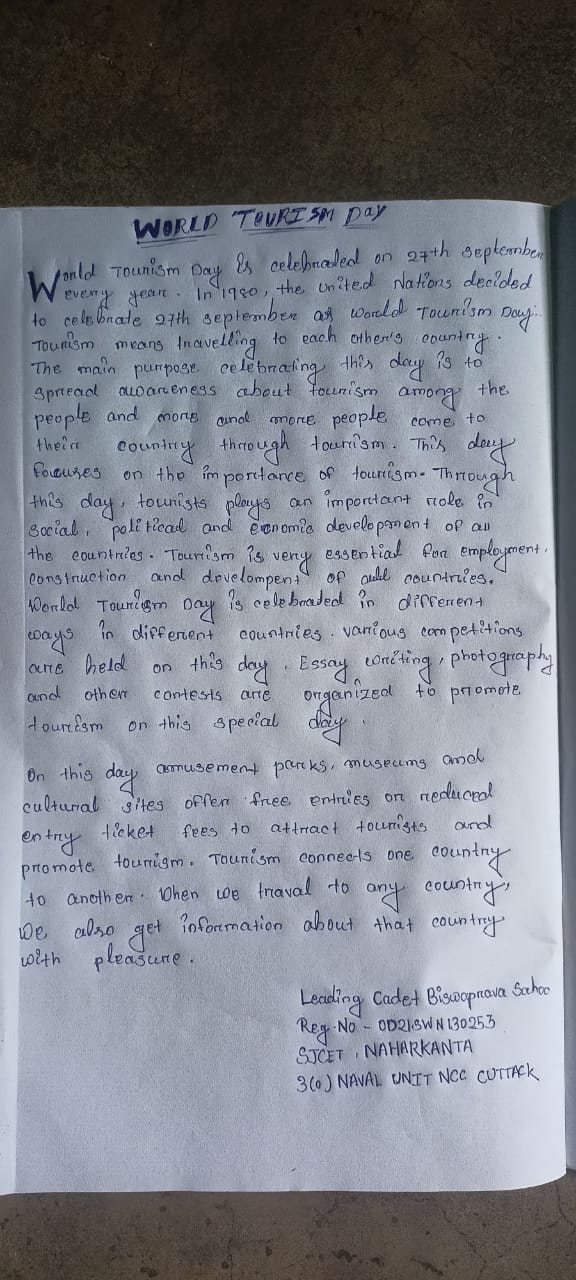 WORLD TOURISM DAY
World Tourism Day is celebrated on 27th september
every year. In 1980, the united Nations decided
to celebrate 27th september as World Tourism Day.
Tourism means travelling to each other's country.
The main purpose celebrating this day is to
spread awareness about tourism among the
people and more and more people come to
their country through tourism. This day
focuses on the importance of tourism. Through
this day, tourists plays an important role in
social, political and economic development of all
the countries. Tourism is very essential for employment,
construction and dovelompent of all countries.
World Tourism Day is celebrated in different
ways in different countries. various competitions
are held on this day. Essay writing, photography
and other contests are organized to promote
tourism on this special day.
On this day amusement parks, museums and
cultural sites offer free entries or reduced
entry ticket fees to attract tourists and
promote tourism. Tourism connects one country
to another. When we traval to any country,
we also get information about that country
with pleasure.
Leading Cadet Biswaprava Sahoo
Reg. No - OD21SWN130253
SJCET, NAHARKANTA
3(O) NAVAL UNIT NCC CUTTACK